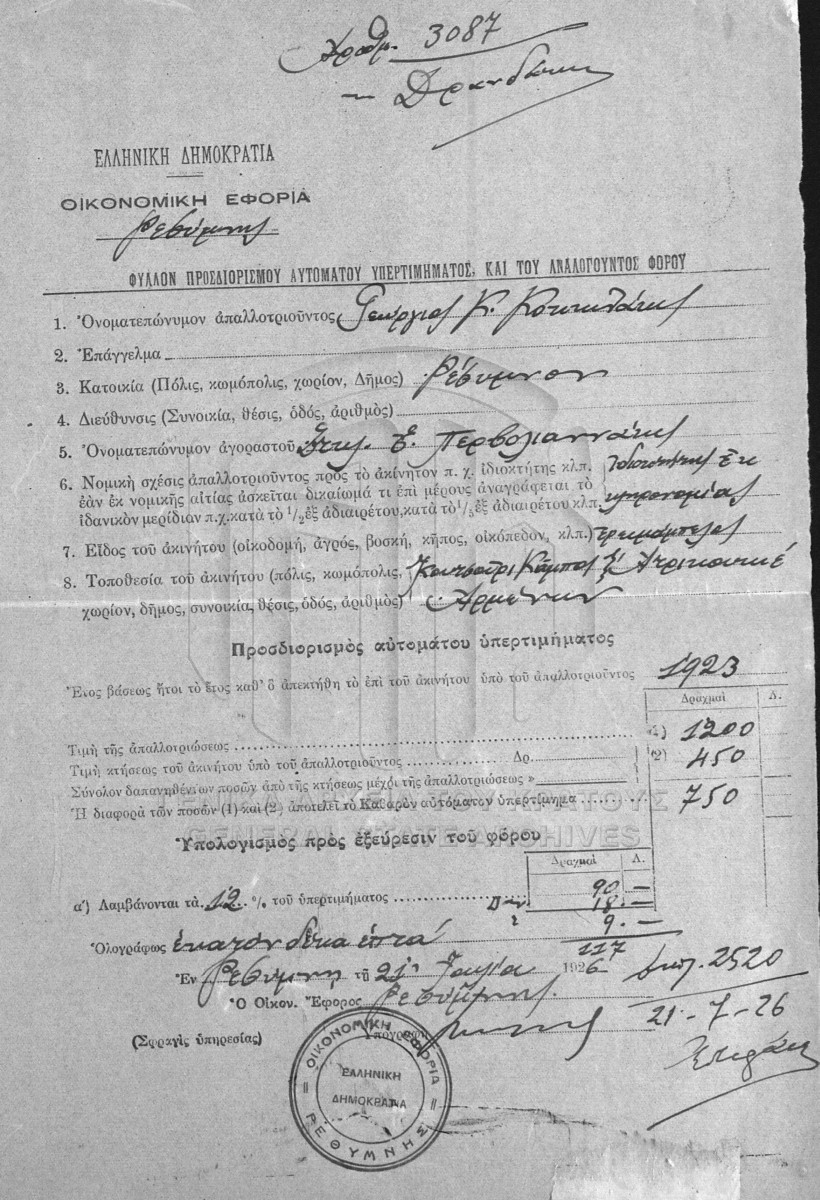 Ἀριθμ. 3087
ΕΛΛΗΝΙΚΗ ΔΗΜΟΚΡΑΤΙΑ
ΟΙΚΟΝΟΜΙΚΗ ΕΦΟΡΙΑ
Ρεθύμνης
ΦΥΛΛΟΝ ΠΡΟΣΔΙΟΡΙΣΜΟΥ ΑΥΤΟΜΑΤΟΥ ΥΠΕΡΤΙΜΗΜΑΤΟΣ, ΚΑΙ ΤΟΥ ΑΝΑΛΟΓΟΥΝΤΟΣ ΦΟΡΟΥ
1. Ὀνοματεπώνυμον ἀπαλλοτριοῦντος Γεώργιος Κ.
2. Ἐπάγγελμα
3. Κατοικία (Πόλις, κωμόπολις, χωρίον, Δῆμος) Ρέθυμνον
4. Διεύθυνσις (Συνοικία, θέσις, ὁδός, ἀριθμὸς)
5. Ὀνοματεπώνυμον ἀγοραστοῦ
6. Νομικὴ σχέσις ἀπαλλοτριοῦντος πρὸς τὸ ἀκίνητον π. χ. ἰδιοκτήτης κλπ. Ἰδιοκτήτης ἐκ
ἐὰν ἐκ νομικῆς αἰτίας ἀσκεῖται δικαίωμά τι ἐπὶ μέρους ἀναγράφεται τὸ κληρονομίας
ἰδανικὸν μερίδιαν π.χ. κατὰ τὸ 1/2 ἐξ ἀδιαιρέτου, κατὰ τὸ 1/5 ἐξ ἀδιαιρέτου κλπ.
7. Εἶδος τοῦ ἀκινήτου (οἰκοδομή, ἀγρός, βοσκή, κῆπος, οἰκόπεδον, κλπ.)
8. Τοποθεσία τοῦ ἀκινήτου (πόλις, κωμόπολις,
χωρίον, δῆμος, συνοικία, θέσις, ὁδός, ἀριθμὸς) Ἀρμένων
Προσδιορισμὸς αὐτομάτου ὑπερτιμήματος
Ἔτος βάσεως ἤτοι τὸ ἔτος καθ' ὃ ἀπεκτήθη τὸ ἐπὶ τοῦ ἀκινήτου ὑπὸ τοῦ ἀπαλλοτριοῦντος 1923
Δραχμαὶ Λ.
Τιμὴ τῆς ἀπαλλοτριώσεως (1) 1200
Τιμὴ κτήσεως τοῦ ἀκινήτου ὑπὸ τοῦ ἀπαλλοτριοῦντος Δρ. (2) 450
Σύνολον δαπανηθέντων ποσῶν ἀπὸ τῆς κτήσεως μέχρι τῆς ἀπαλλοτριώσεως »
Ἡ διαφορὰ τῶν ποσῶν (1) καὶ (2) ἀποτελεῖ τὸ Καθαρὸν αὐτόματον ὑπερτίμημα 750
ΓΕΝΙΚΑ ΑΡΧΕΙΑ ΤΟΥ ΚΡΑΤΟΥΣ
GENERAL STATE ARCHIVES
Ὑπολογισμὸς πρὸς ἐξεύρεσιν τοῦ φόρου
Δραχμαὶ Λ.
90 —
α') Λαμβάνονται τὰ 12 % τοῦ ὑπερτιμήματος 18. —
9. —
Ὁλογράφως ἑκατὸν δέκα ἑπτά 117
Ἐν Ρεθύμνῃ τῇ 21ῃ Ἰουλίου 1926 2520
Ὁ Οἰκον. Ἔφορος Ρεθύμνης 21-7-26
(Σφραγὶς ὑπηρεσίας) Ὑπογραφὴ
ΟΙΚΟΝΟΜΙΚΗ ΕΦΟΡΙΑ
ΕΛΛΗΝΙΚΗ
ΔΗΜΟΚΡΑΤΙΑ
ΡΕΘΥΜΝΗΣ